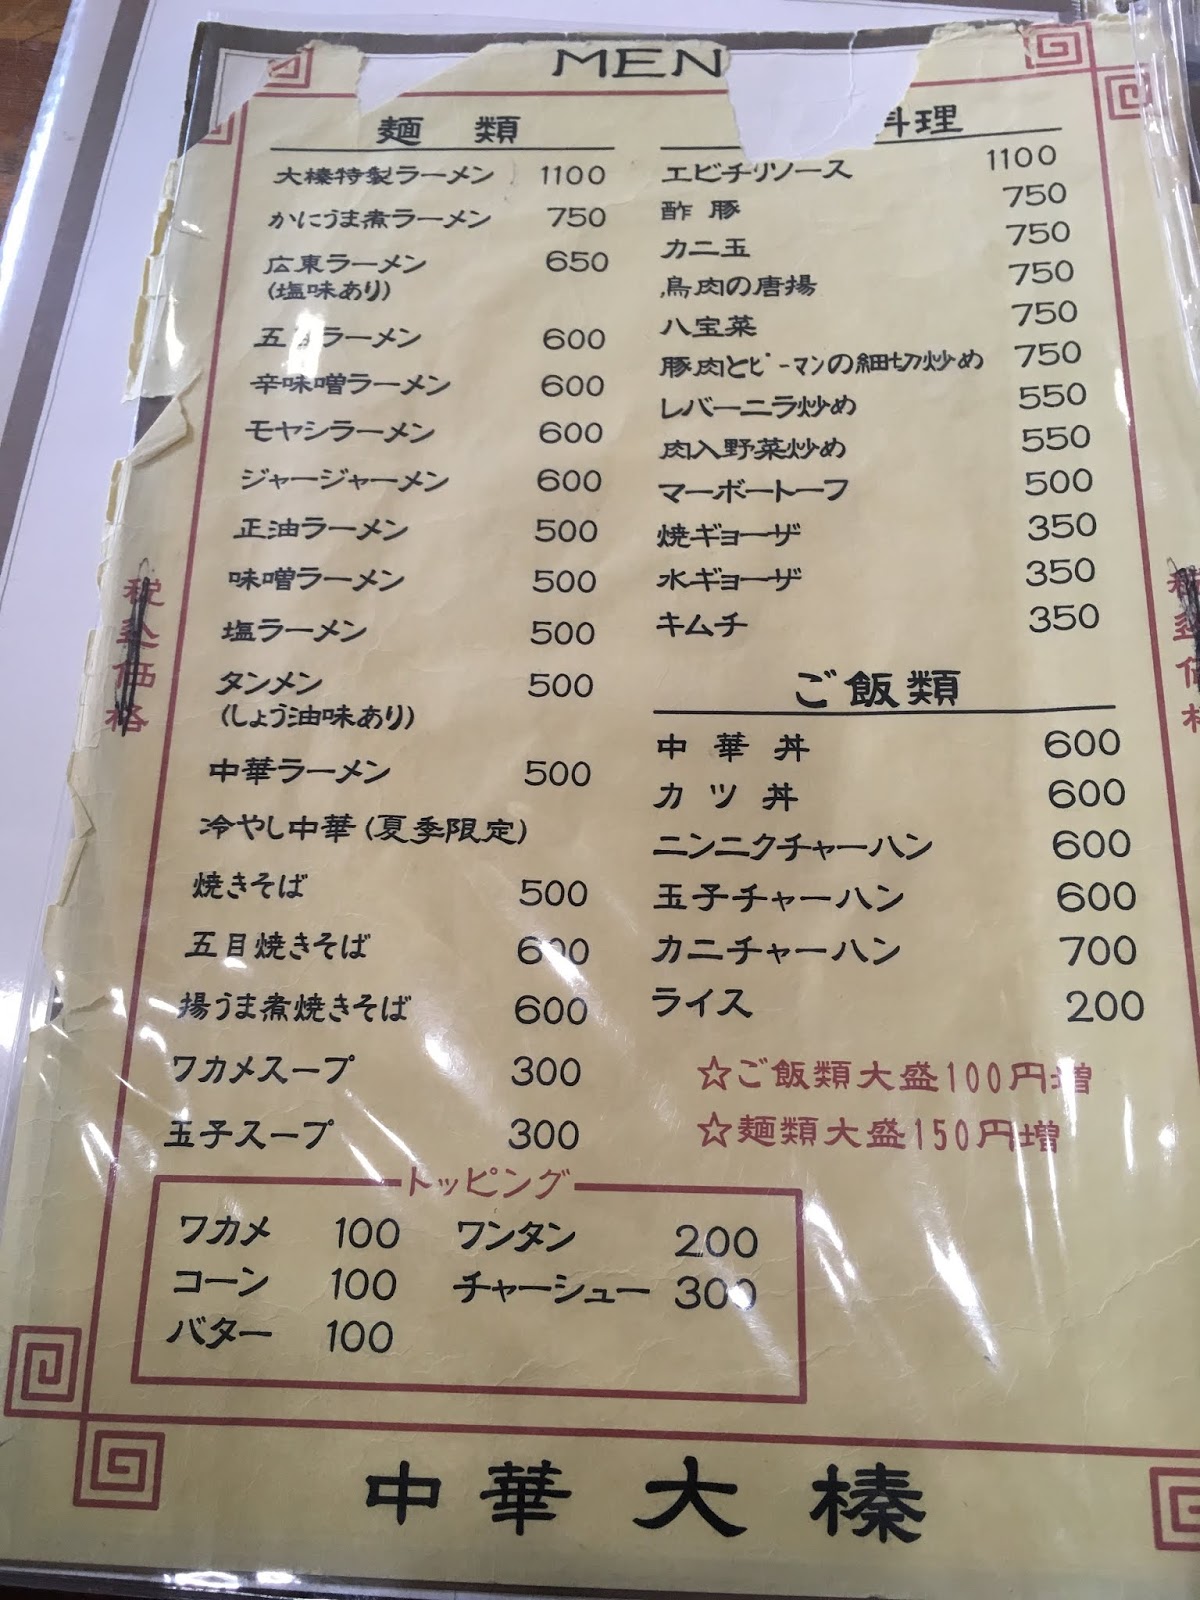 MEN
麺 類
大榛特製ラーメン 1100
かにうま煮ラーメン 750
広東ラーメン 650
(塩味あり)
五目ラーメン 600
辛味噌ラーメン 600
モヤシラーメン 600
ジャージャーメン 600
正油ラーメン 500
味噌ラーメン 500
塩ラーメン 500
タンメン 500
(しょう油味あり)
中華ラーメン 500
冷やし中華(夏季限定)
焼きそば 500
五目焼きそば 600
揚うま煮焼きそば 600
ワカメスープ 300
玉子スープ 300
料理
エビチリソース 1100
酢豚 750
カニ玉 750
鳥肉の唐揚 750
八宝菜 750
豚肉とピーマンの細切炒め 750
レバーニラ炒め 550
肉入野菜炒め 550
マーボートーフ 500
焼ギョーザ 350
水ギョーザ 350
キムチ 350
ご飯類
中華丼 600
カツ丼 600
ニンニクチャーハン 600
玉子チャーハン 600
カニチャーハン 700
ライス 200
☆ご飯類大盛100円増
☆麺類大盛150円増
トッピング
ワカメ 100 ワンタン 200
コーン 100 チャーシュー 300
バター 100
税込価格
税込価格
中華大榛